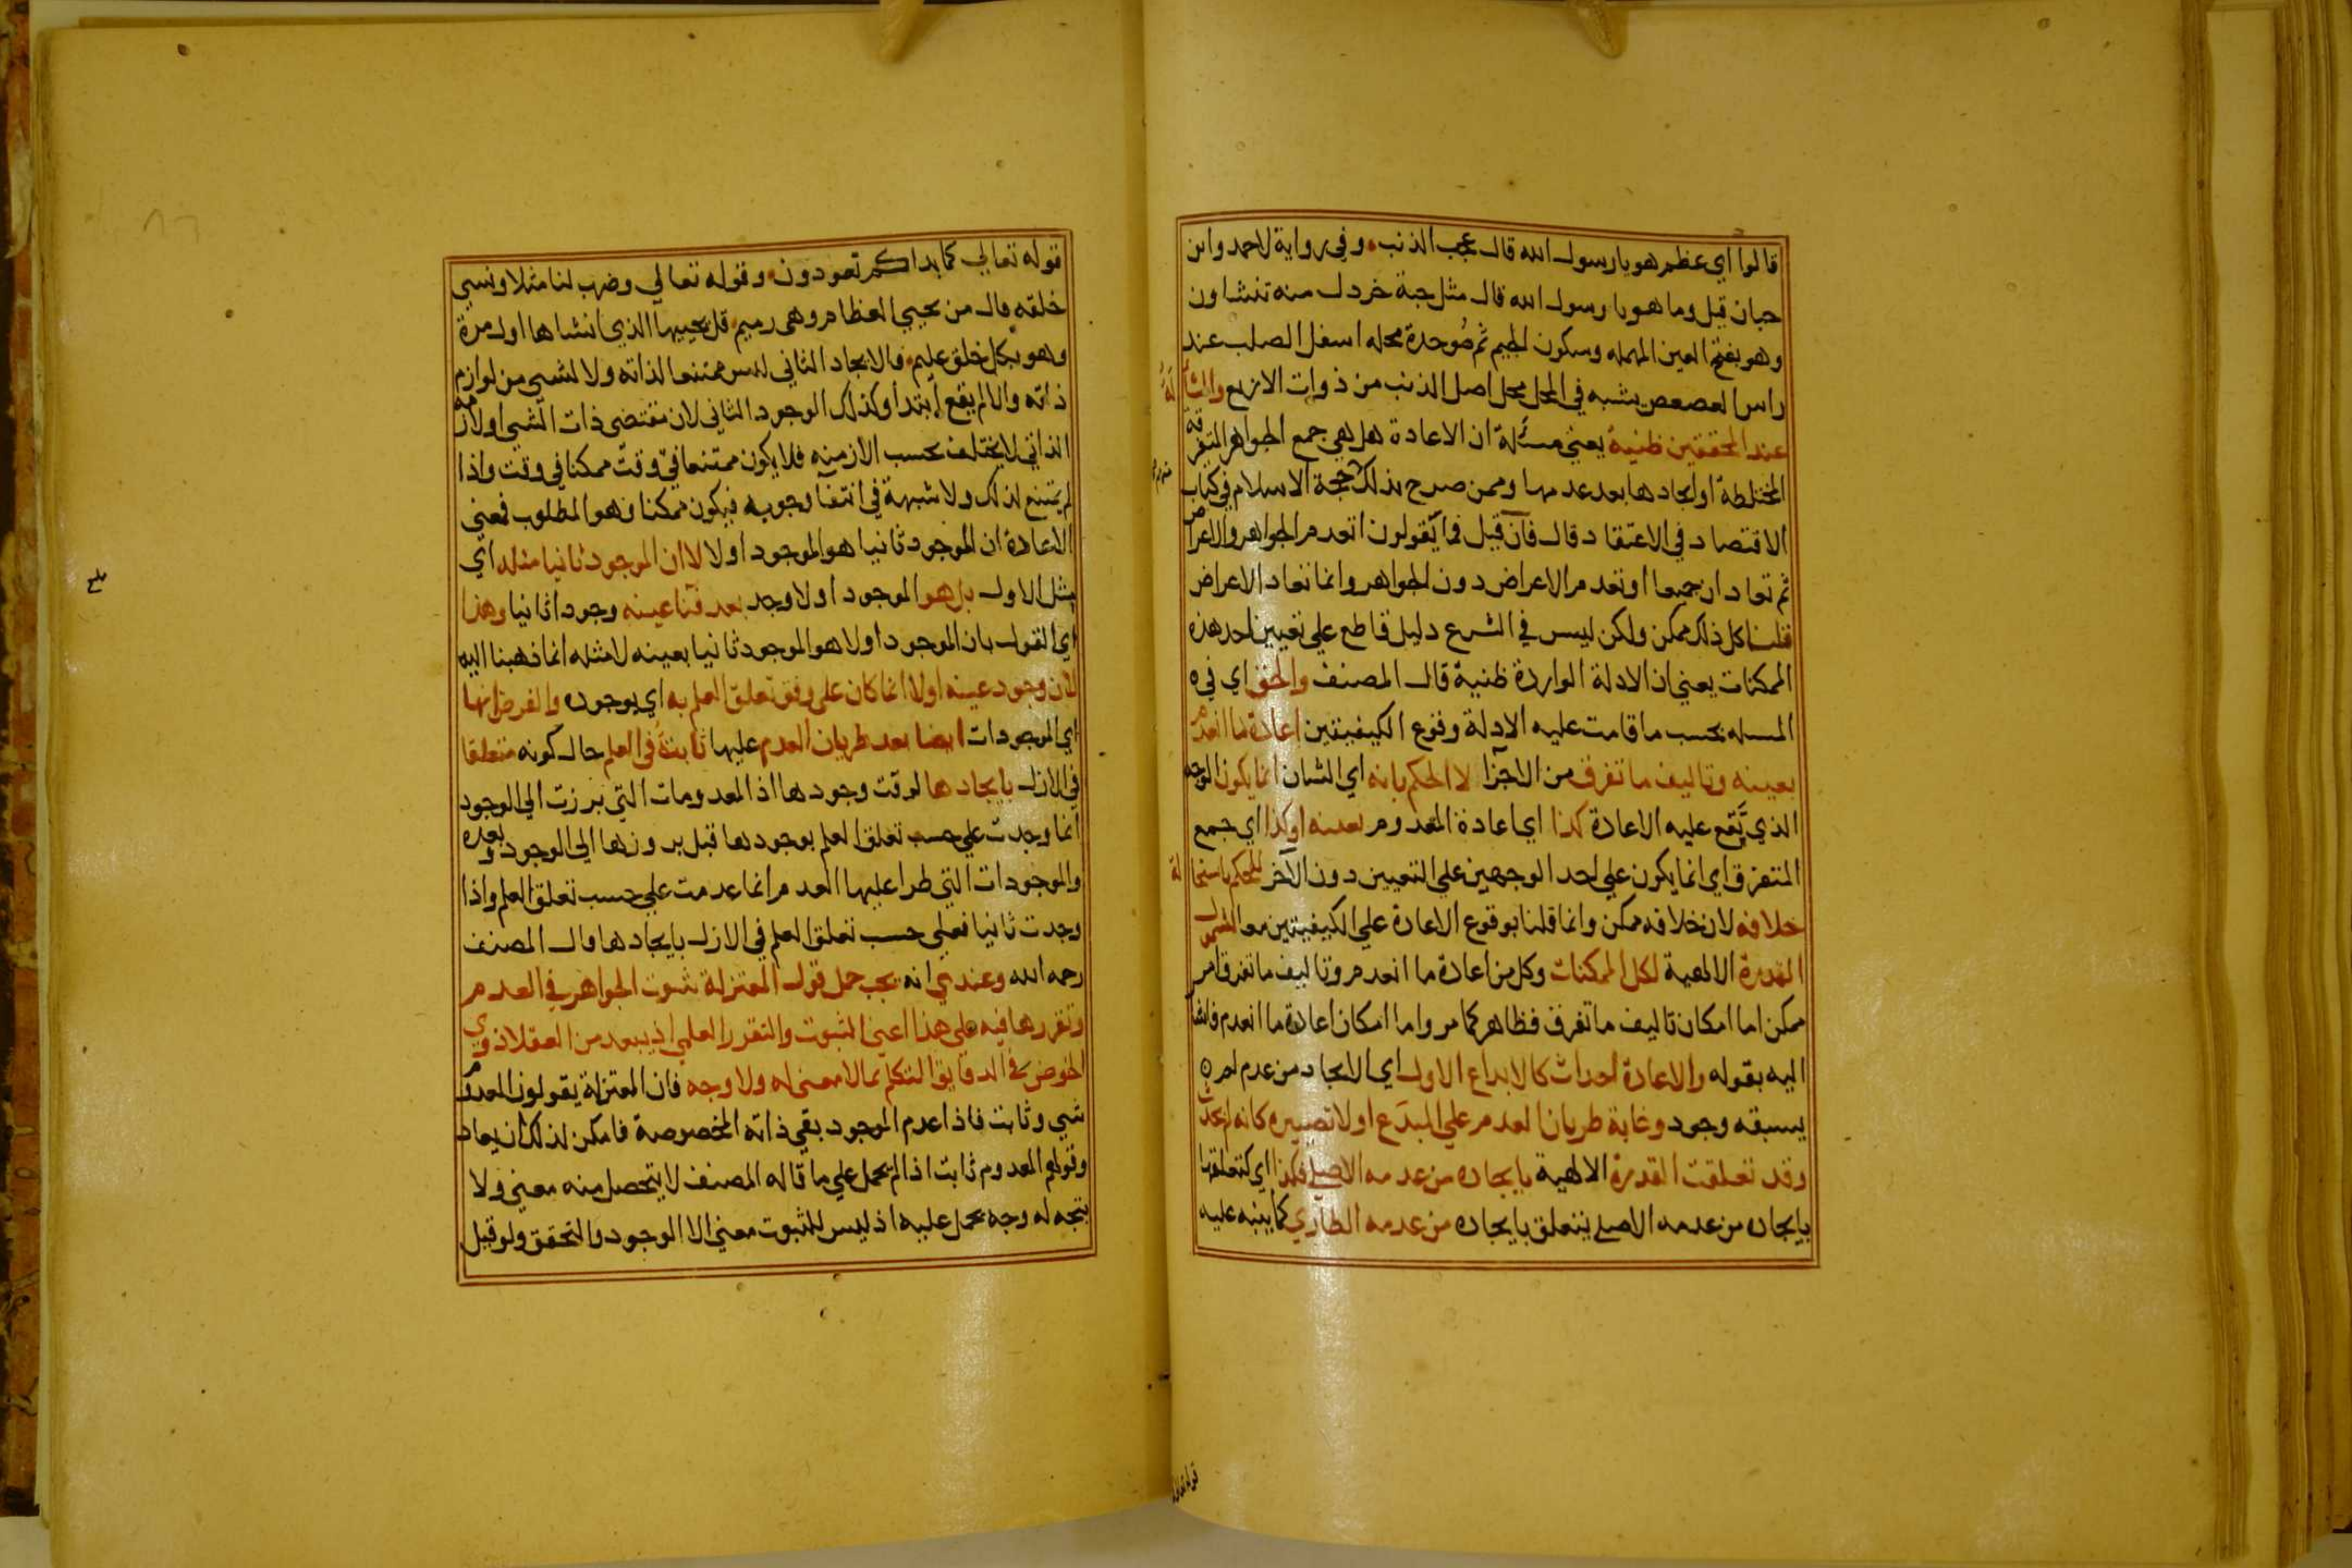 قالوا اي عظم هو يا رسول الله قال عجب الذنب وفي رواية لاحمد وابن
حبان قيل وما هو يا رسول الله قال مثل حبة خردل منه تنشاون
وهو بفتح العين المهمله وسكون الجيم ثم موحدة محله اسفل الصلب عند
راس العصعص يشبه في المحل محل اصل الذنب من ذوات الاربع والمسألة
عند المحققين ظنية يعني مسئلة ان الاعادة هل هي جمع الجواهر المتفرقة
المختلطة او ايجادها بعد عدمها وممن صرح بذلك حجة الاسلام في كتاب
الاقتصاد في الاعتقاد قال فان قيل فما تقولون اتعدم الجواهر والاعراض
ثم تعادان جميعا او تعدم الاعراض دون الجواهر وانما تعاد الاعراض
قلنا كل ذلك ممكن ولكن ليس في الشرع دليل قاطع علي تعيين احد هذه
الممكنات يعني ان الادلة الواردة ظنية قال المصنف والحق اي في ه
المسله بحسب ما قامت عليه الادلة وقوع الكيفيتين اعادة ما انعدم
بعينه وتاليف ما تفرق من الاجزا لا الحكم بانه اي الشان انما يكون الوجه
الذي تقع عليه الاعادة كذا اي اعادة المعدوم بعينه او كذا اي جمع
المتفرق اي انما يكون علي احد الوجهين علي التعيين دون الآخر للحكم باستحالة
خلافه لان خلافه ممكن وانما قلنا بوقوع الاعادة علي الكيفيتين معا لشمول
القدرة الالهية لكل الممكنات وكل من اعادة ما انعدم وتاليف ما تفرق امر
ممكن اما امكان تاليف ما تفرق فظاهر كما مر واما امكان اعادة ما انعدم فاشار
اليه بقوله والاعادة احداث كالابداع الاول اي الايجاد من عدم لم ه
يسبقه وجود وغاية طريان العدم علي المبدَع اولا تصييره كانه لم يحدث
وقد تعلقت القدرة الالهية بايجاده من عدمه الاصلي فكذا اي كتعلقها
بايجاده من عدمه الاصلي يتعلق بايجاده من عدمه الطاري كما ينبه عليه
قوله تعالي
قوله تعالي كما بداكم تعودون وقوله تعالي وضرب لنا مثلا ونسي
خلقه قال من يحيي العظام وهي رميم قل يحييها الذي انشاها اول مرة
وهو بكل خلق عليم فالايجاد الثاني ليس ممتنعا لذاته ولا لشيي من لوازم
ذاته والا لم يقع ابتداً وكذلك الوجود الثاني لان مقتضى ذات الشيي او لازمه
الذاتي لا يختلف بحسب الازمنه فلا يكون ممتنعا في وقت ممكنا في وقت واذا
لم يمتنع لذلك ولا شبهة في انتفآ وجوبه فيكون ممكنا وهو المطلوب فمعني
الاعادة ان الموجود ثانيا هو الموجود اولا لا ان الموجود ثانيا مثله اي
مثل الاول بل هو الموجود اولا وجد بعد فنا عينه وجودا ثانيا وهذا
اي القول بان الموجود اولا هو الموجود ثانيا بعينه لا مثله انما ذهبنا اليه
لان وجود عينه اولا انما كان علي وفق تعلق العلم به اي بوجوده والفرض انها
اي الموجودات ايضا بعد طريان العدم عليها ثابتة في العلم حال كونه متعلقا
في الازل بايجادها لوقت وجودها اذ المعدومات التي برزت الي الوجود
انما وجدت علي حسب تعلق العلم بوجودها قبل بروزها الي الوجود وبعده
والموجودات التي طرا عليها العدم انما عدمت علي حسب تعلق العلم واذا
وجدت ثانيا فعلي حسب تعلق العلم في الازل بايجادها قال المصنف
رحمه الله وعندي انه يجب حمل قول المعتزلة ثبوت الجواهر في العدم
وتقررها فيه علي هذا اعني الثبوت والتقرر العلمي اذ يبعد من العقلا ذوي
الخوض في الدقايق التكلم بما لا معنى له ولا وجه فان المعتزلة يقولون المعدوم
شيي وثابت فاذا عدم الموجود بقي ذاته المخصوصة فامكن لذلك ان يعاد
وقولهم المعدوم ثابت اذا لم يحمل علي ما قاله المصنف لا يتحصل منه معني ولا
يتجه له وجه يحمل عليه اذ ليس للثبوت معني الا الوجود والتحقق ولو قيل